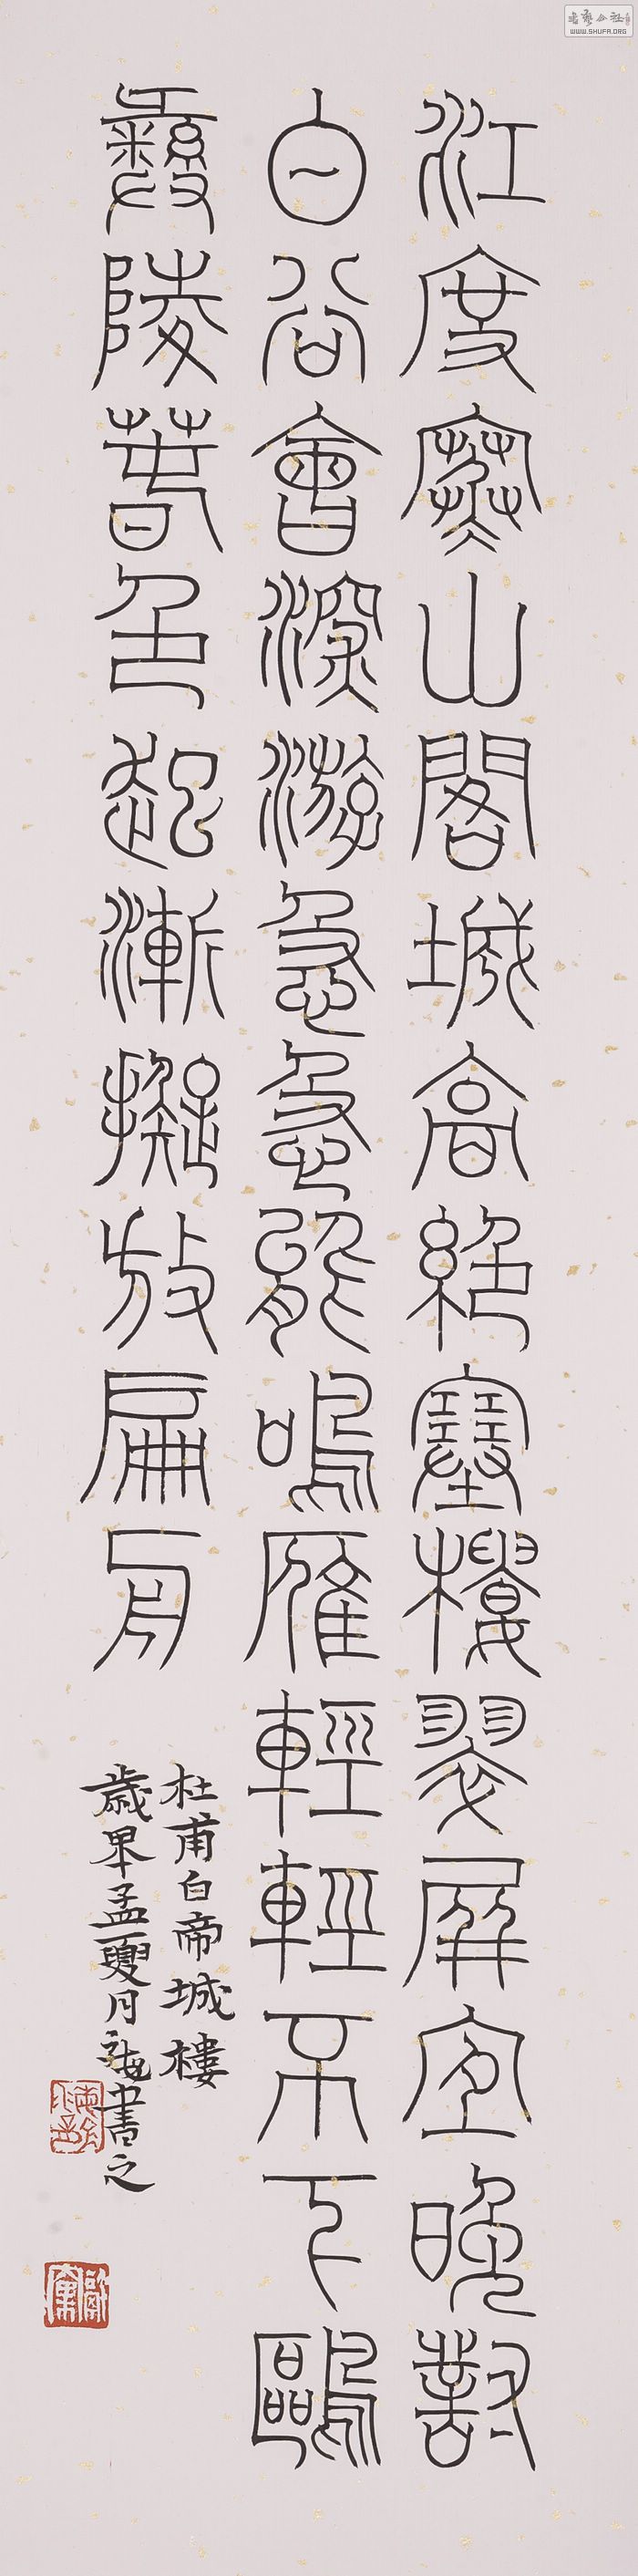 江度寒山閣城高絕塞樓翠屏宜晚對
白谷會深游急急能鳴雁輕輕不下鷗
彝陵春色起漸擬放扁舟
杜甫白帝城樓
歲孟夏月書之
書法公社
WWW.SHUFA.ORG